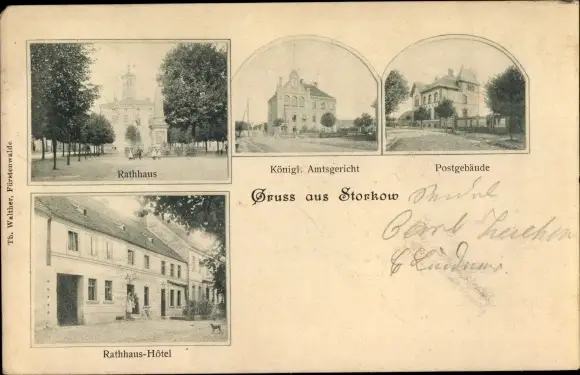 Rathhaus
Königl. Amtsgericht
Postgebäude
Gruss aus Storkow
Rathhaus-Hôtel
Th. Walther, Fürstenwalde.
Carl